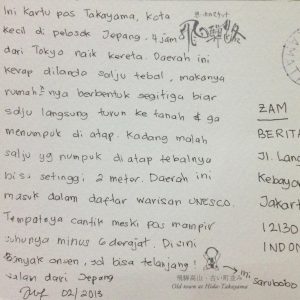 Ini kartu pos Takayama, kota
kecil di pelosok Jepang. 4 jam
dari Tokyo naik kereta. Daerah ini
kerap dilanda salju tebal, makanya
rumah²nya berbentuk segitiga biar
salju langsung turun ke tanah & ga
menumpuk di atap. Kadang malah
salju yg numpuk di atap tebalnya
bisa setinggi 2 meter. Daerah ini
masuk dalam daftar warisan UNESCO.
Tempatnya cantik meski pas mampir
suhunya minus 6 derajat. Disini
banyak onsen, jd bisa telanjang!
Salam dari Jepang
02/2013
飛騨高山・古い町並み
Old town at Hida-Takayama
ini
sarubobo
ZAM
BERITA
Jl. Lang
Kebayo
Jakart
12130
INDON